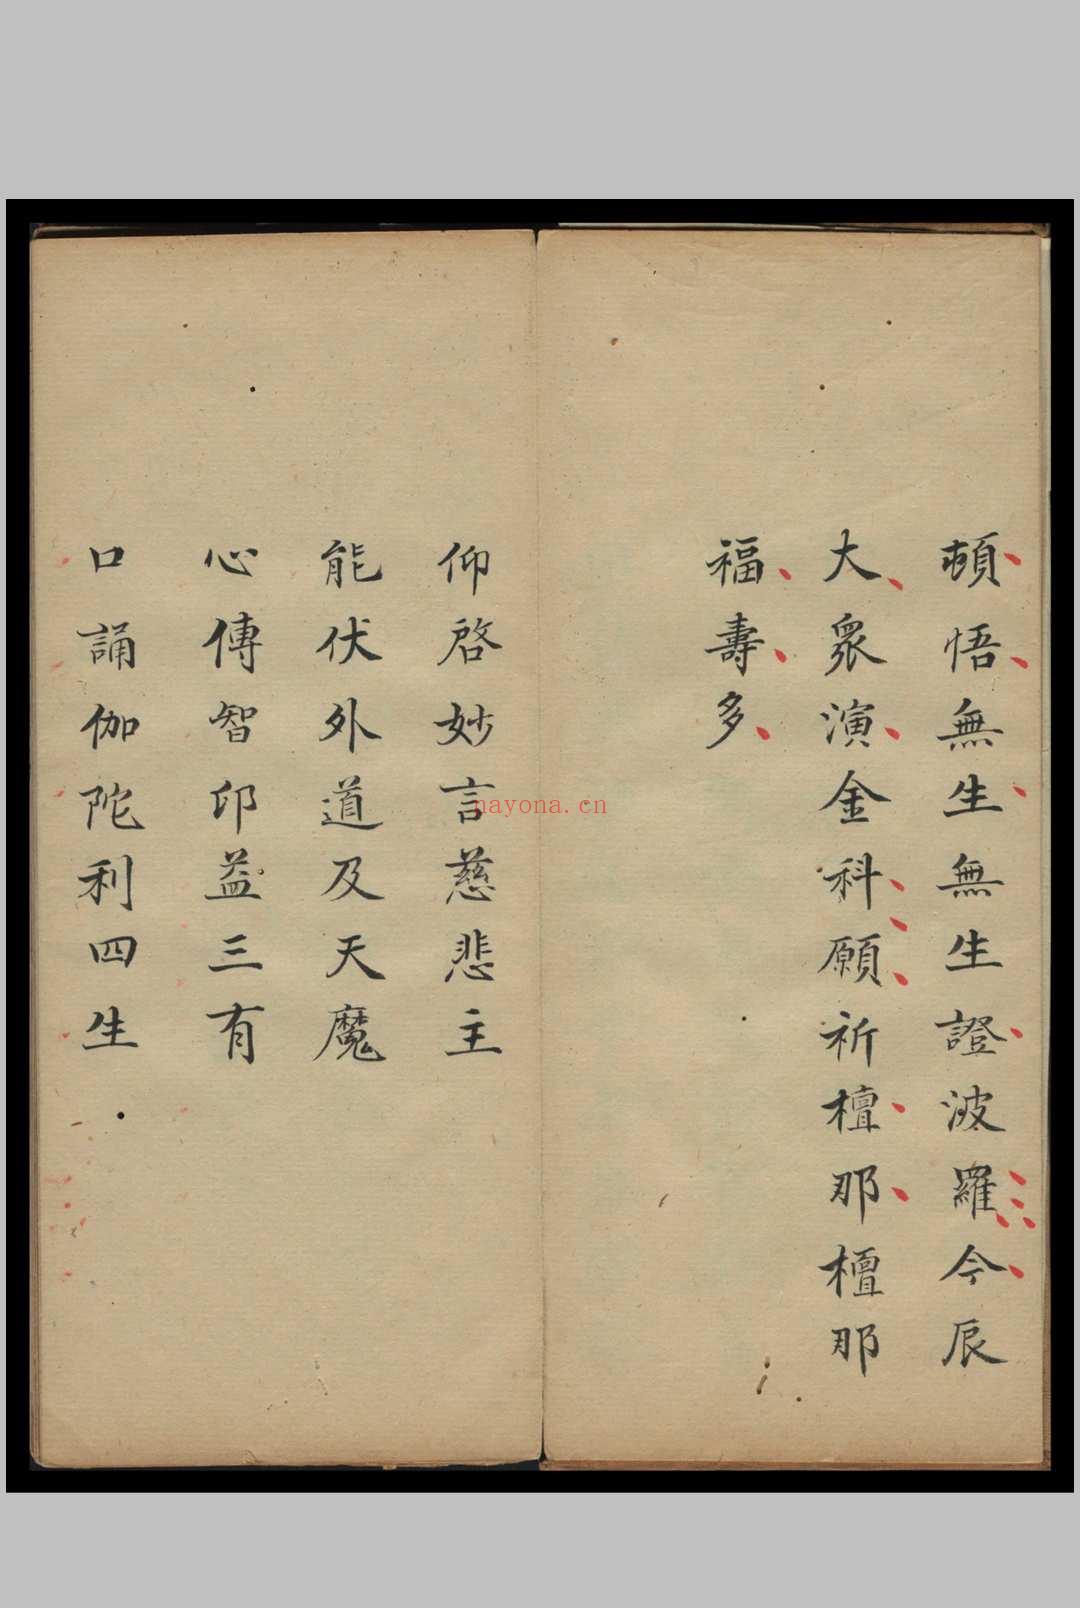 頓悟無生無生證波羅今辰
大眾演金科願祈檀那檀那
福壽多
仰啓妙言慈悲主
能伏外道及天魔
心傳智印益三有
口誦伽陀利四生
nayona.cn